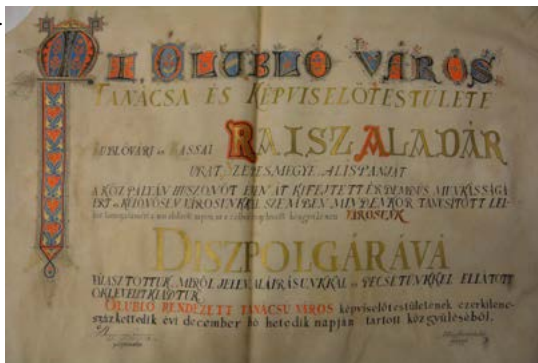 MI, ÓLUBLÓ VÁROS
TANÁCSA ÉS KÉPVISELŐTESTÜLETE
RAISZ ALADÁR
URAT SZEPESMEGYE ALISPÁNJÁT
A KÖZ PÁLYÁN HUSZONÖT ÉVEN ÁT KIFEJTETT ÉRDEMDÚS MUNKÁSSÁGA
ÉRT ÉS KÜLÖNÖSEN VÁROSUNKKAL SZEMBEN MINDENKOR TANUSÍTOTT
VÁROSUNK
DISZPOLGÁRÁVÁ
VÁLASZTOTTUK, MIRŐL JELEN ALÁIRÁSUNKKAL ÉS PECSÉTÜNKKEL ELLÁTOTT
OKLEVELET KIADTUK
ÓLUBLÓ RENDEZETT TANÁCSU VÁROS képviselőtestületének ezerkilenc-
százkettedik évi december hó hetedik napján tartott közgyűléséből.